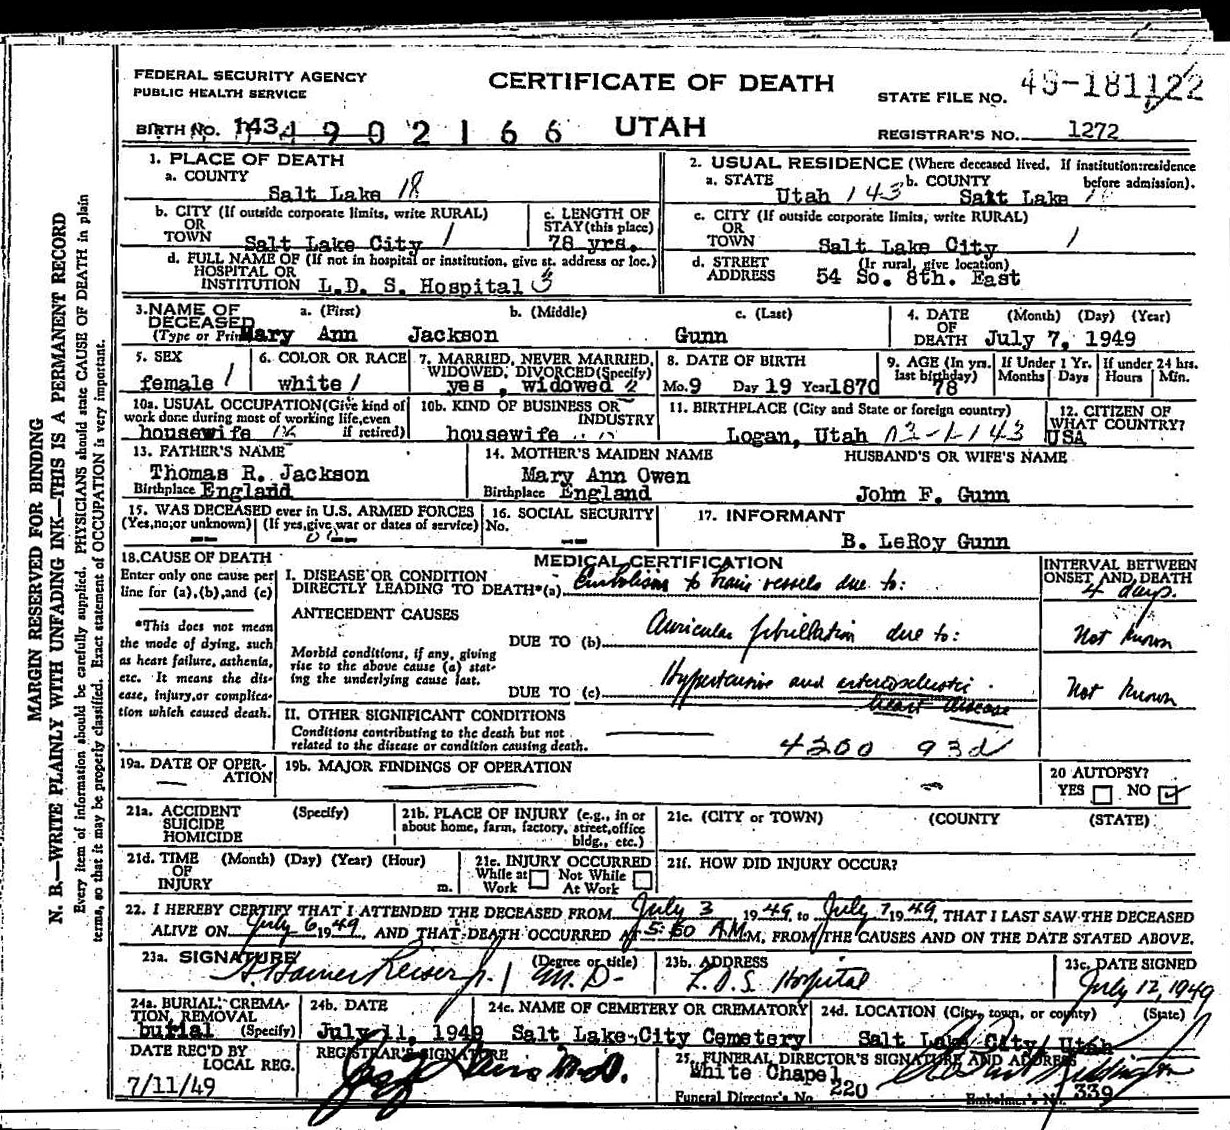 FEDERAL SECURITY AGENCY
PUBLIC HEALTH SERVICE
CERTIFICATE OF DEATH
UTAH
STATE FILE NO. 49-181122
BIRTH NO. 143 4 9 0 2 1 6 6
REGISTRAR'S NO. 1272
1. PLACE OF DEATH
a. COUNTY
Salt Lake 18
b. CITY (If outside corporate limits, write RURAL)
OR
TOWN Salt Lake City 1
c. LENGTH OF
STAY (this place)
78 yrs.
d. FULL NAME OF (If not in hospital or institution, give st. address or loc.)
HOSPITAL OR
INSTITUTION L.D. S. Hospital
2. USUAL RESIDENCE (Where deceased lived. If institution:residence
before admission).
a. STATE Utah 143 b. COUNTY Salt Lake
c. CITY (If outside corporate limits, write RURAL)
OR
TOWN Salt Lake City 1
d. STREET (Ir rural, give location)
ADDRESS 54 So. 8th. East
3. NAME OF DECEASED
(Type or Print)
a. (First) b. (Middle) c. (Last)
Mary Ann Jackson Gunn
4. DATE OF DEATH (Month) (Day) (Year)
July 7, 1949
5. SEX
female 1
6. COLOR OR RACE
white 1
7. MARRIED, NEVER MARRIED,
WIDOWED, DIVORCED (Specify)
yes, widowed 2
8. DATE OF BIRTH
Mo. 9 Day 19 Year 1870
9. AGE (In yrs. last birthday)
78
If Under 1 Yr.
Months Days
If under 24 hrs.
Hours Min.
10a. USUAL OCCUPATION (Give kind of
work done during most of working life, even
if retired)
housewife
10b. KIND OF BUSINESS OR
INDUSTRY
housewife
11. BIRTHPLACE (City and State or foreign country)
Logan, Utah
12. CITIZEN OF
WHAT COUNTRY?
USA
13. FATHER'S NAME
Thomas R. Jackson
Birthplace England
14. MOTHER'S MAIDEN NAME
Mary Ann Owen
Birthplace England
HUSBAND'S OR WIFE'S NAME
John F. Gunn
15. WAS DECEASED ever in U.S. ARMED FORCES
(Yes, no, or unknown) (If yes, give war or dates of service)
16. SOCIAL SECURITY
No.
--
17. INFORMANT
B. LeRoy Gunn
18. CAUSE OF DEATH
Enter only one cause per
line for (a), (b), and (c)
*This does not mean
the mode of dying, such
as heart failure, asthenia,
etc. It means the dis-
ease, injury, or complica-
tion which caused death.
MEDICAL CERTIFICATION
INTERVAL BETWEEN
ONSET AND DEATH
I. DISEASE OR CONDITION
DIRECTLY LEADING TO DEATH*(a) Embolism to brain vessels due to:
4 days.
ANTECEDENT CAUSES
DUE TO (b) Auricular fibrillation due to:
Not known
Morbid conditions, if any, giving
rise to the above cause (a) stat-
ing the underlying cause last.
DUE TO (c) Hypertensive and arteriosclerotic
heart disease
Not known
II. OTHER SIGNIFICANT CONDITIONS
Conditions contributing to the death but not
related to the disease or condition causing death.
4200 93d
19a. DATE OF OPER-
ATION
19b. MAJOR FINDINGS OF OPERATION
20 AUTOPSY?
YES NO ✓
21a. ACCIDENT
SUICIDE
HOMICIDE
(Specify)
21b. PLACE OF INJURY (e.g., in or
about home, farm, factory, street, office
bldg., etc.)
21c. (CITY or TOWN) (COUNTY) (STATE)
21d. TIME (Month) (Day) (Year) (Hour)
OF
INJURY m.
21e. INJURY OCCURRED
While at Work Not While At Work
21f. HOW DID INJURY OCCUR?
22. I HEREBY CERTIFY THAT I ATTENDED THE DECEASED FROM July 3, 1949, to July 7 1949, THAT I LAST SAW THE DECEASED
ALIVE ON July 6 1949, AND THAT DEATH OCCURRED AT 5:50 A.M. M, FROM THE CAUSES AND ON THE DATE STATED ABOVE.
23a. SIGNATURE (Degree or title)
M.D.
23b. ADDRESS
L.D.S. Hospital
23c. DATE SIGNED
July 12, 1949
24a. BURIAL, CREMA-
TION, REMOVAL
burial (Specify)
24b. DATE
July 11, 1949
24c. NAME OF CEMETERY OR CREMATORY
Salt Lake City Cemetery
24d. LOCATION (City, town, or county) (State)
Salt Lake City, Utah
DATE REC'D BY
LOCAL REG.
7/11/49
REGISTRAR'S SIGNATURE
M.D.
25. FUNERAL DIRECTOR'S SIGNATURE AND ADDRESS
White Chapel
Funeral Director's No. 220
Embalmer's No. 339
MARGIN RESERVED FOR BINDING
N. B.—WRITE PLAINLY WITH UNFADING INK—THIS IS A PERMANENT RECORD
Every item of information should be carefully supplied. PHYSICIANS should state CAUSE OF DEATH in plain
terms, so that it may be properly classified. Exact statement of OCCUPATION is very important.